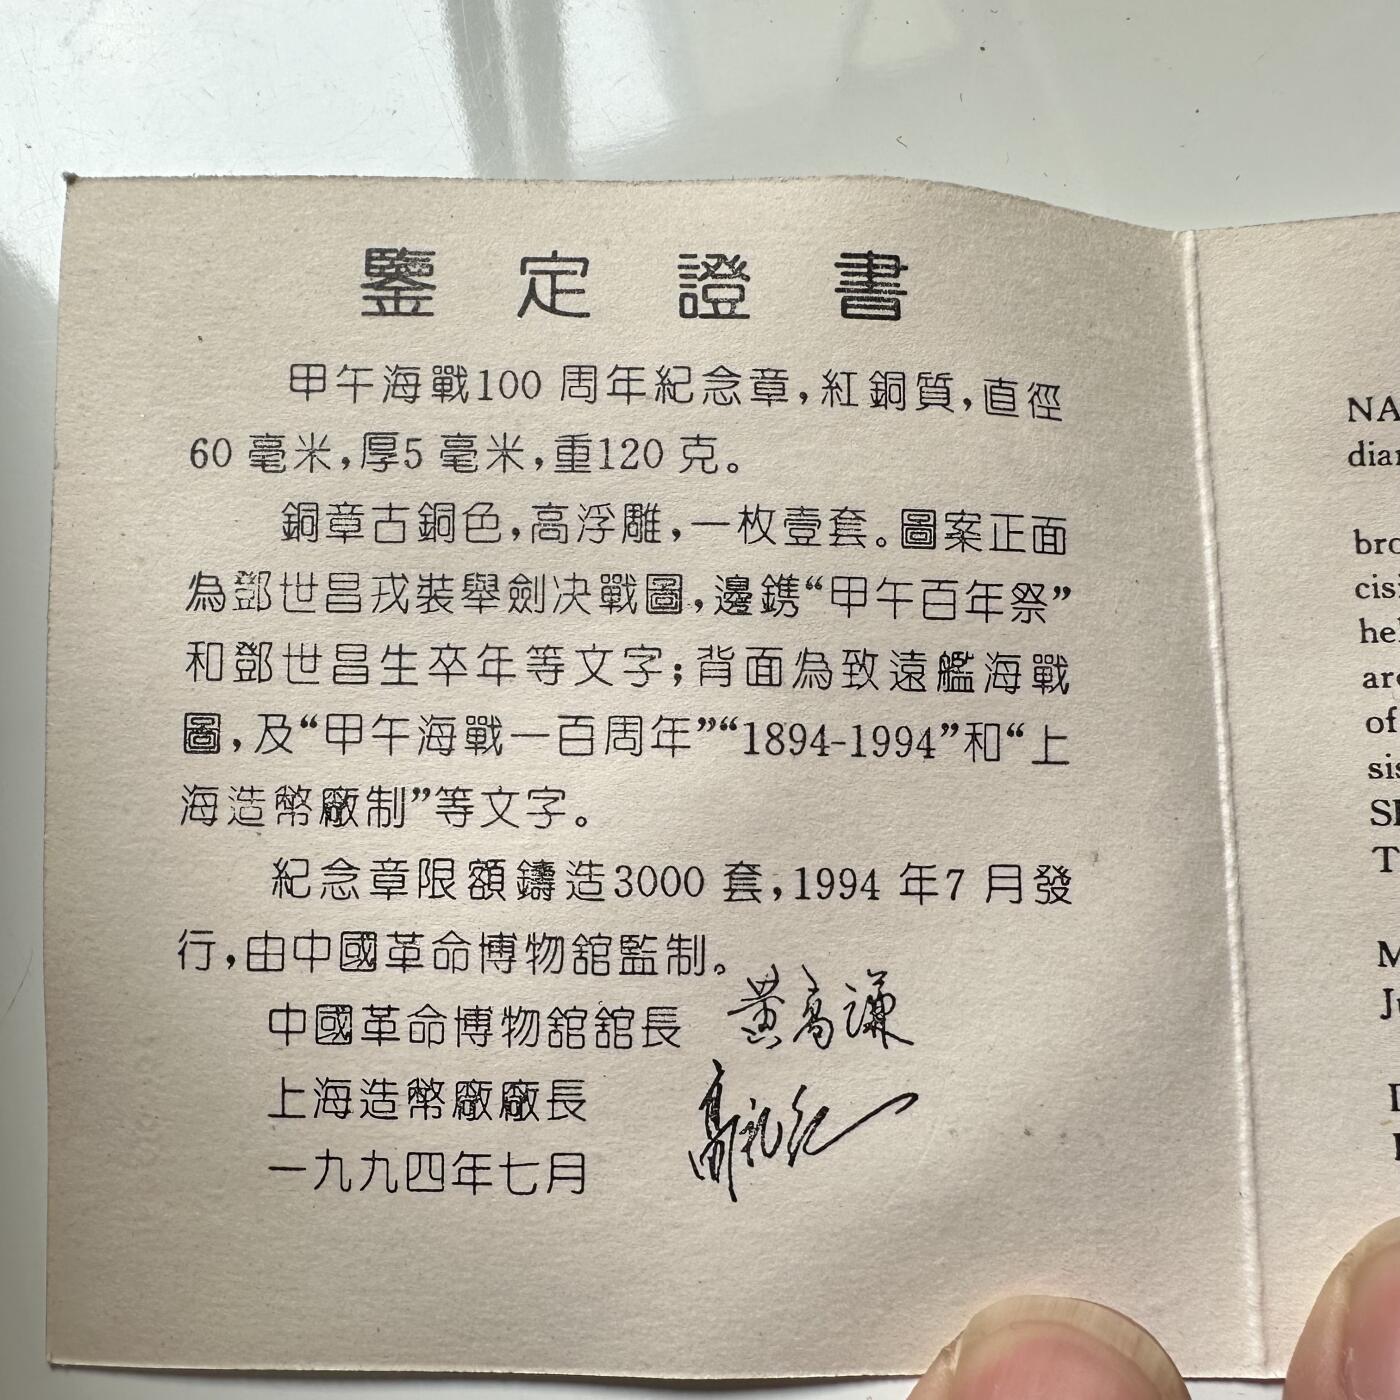 鑒定證書
甲午海戰100 周年紀念章,紅銅質,直徑
60 毫米,厚5 毫米,重120 克。
銅章古銅色,高浮雕,一枚壹套。圖案正面
為鄧世昌戎裝舉劍決戰圖,邊鐫“甲午百年祭”
和鄧世昌生卒年等文字;背面為致遠艦海戰
圖,及“甲午海戰一百周年”“1894-1994”和“上
海造幣廠制”等文字。
紀念章限額鑄造3000 套,1994 年7 月發
行,由中國革命博物舘監制。
中國革命博物舘舘長 黄高謙
上海造幣廠廠長
一九九四年七月
NA
diar
bro
cis
hel
are
of
sis
T
M